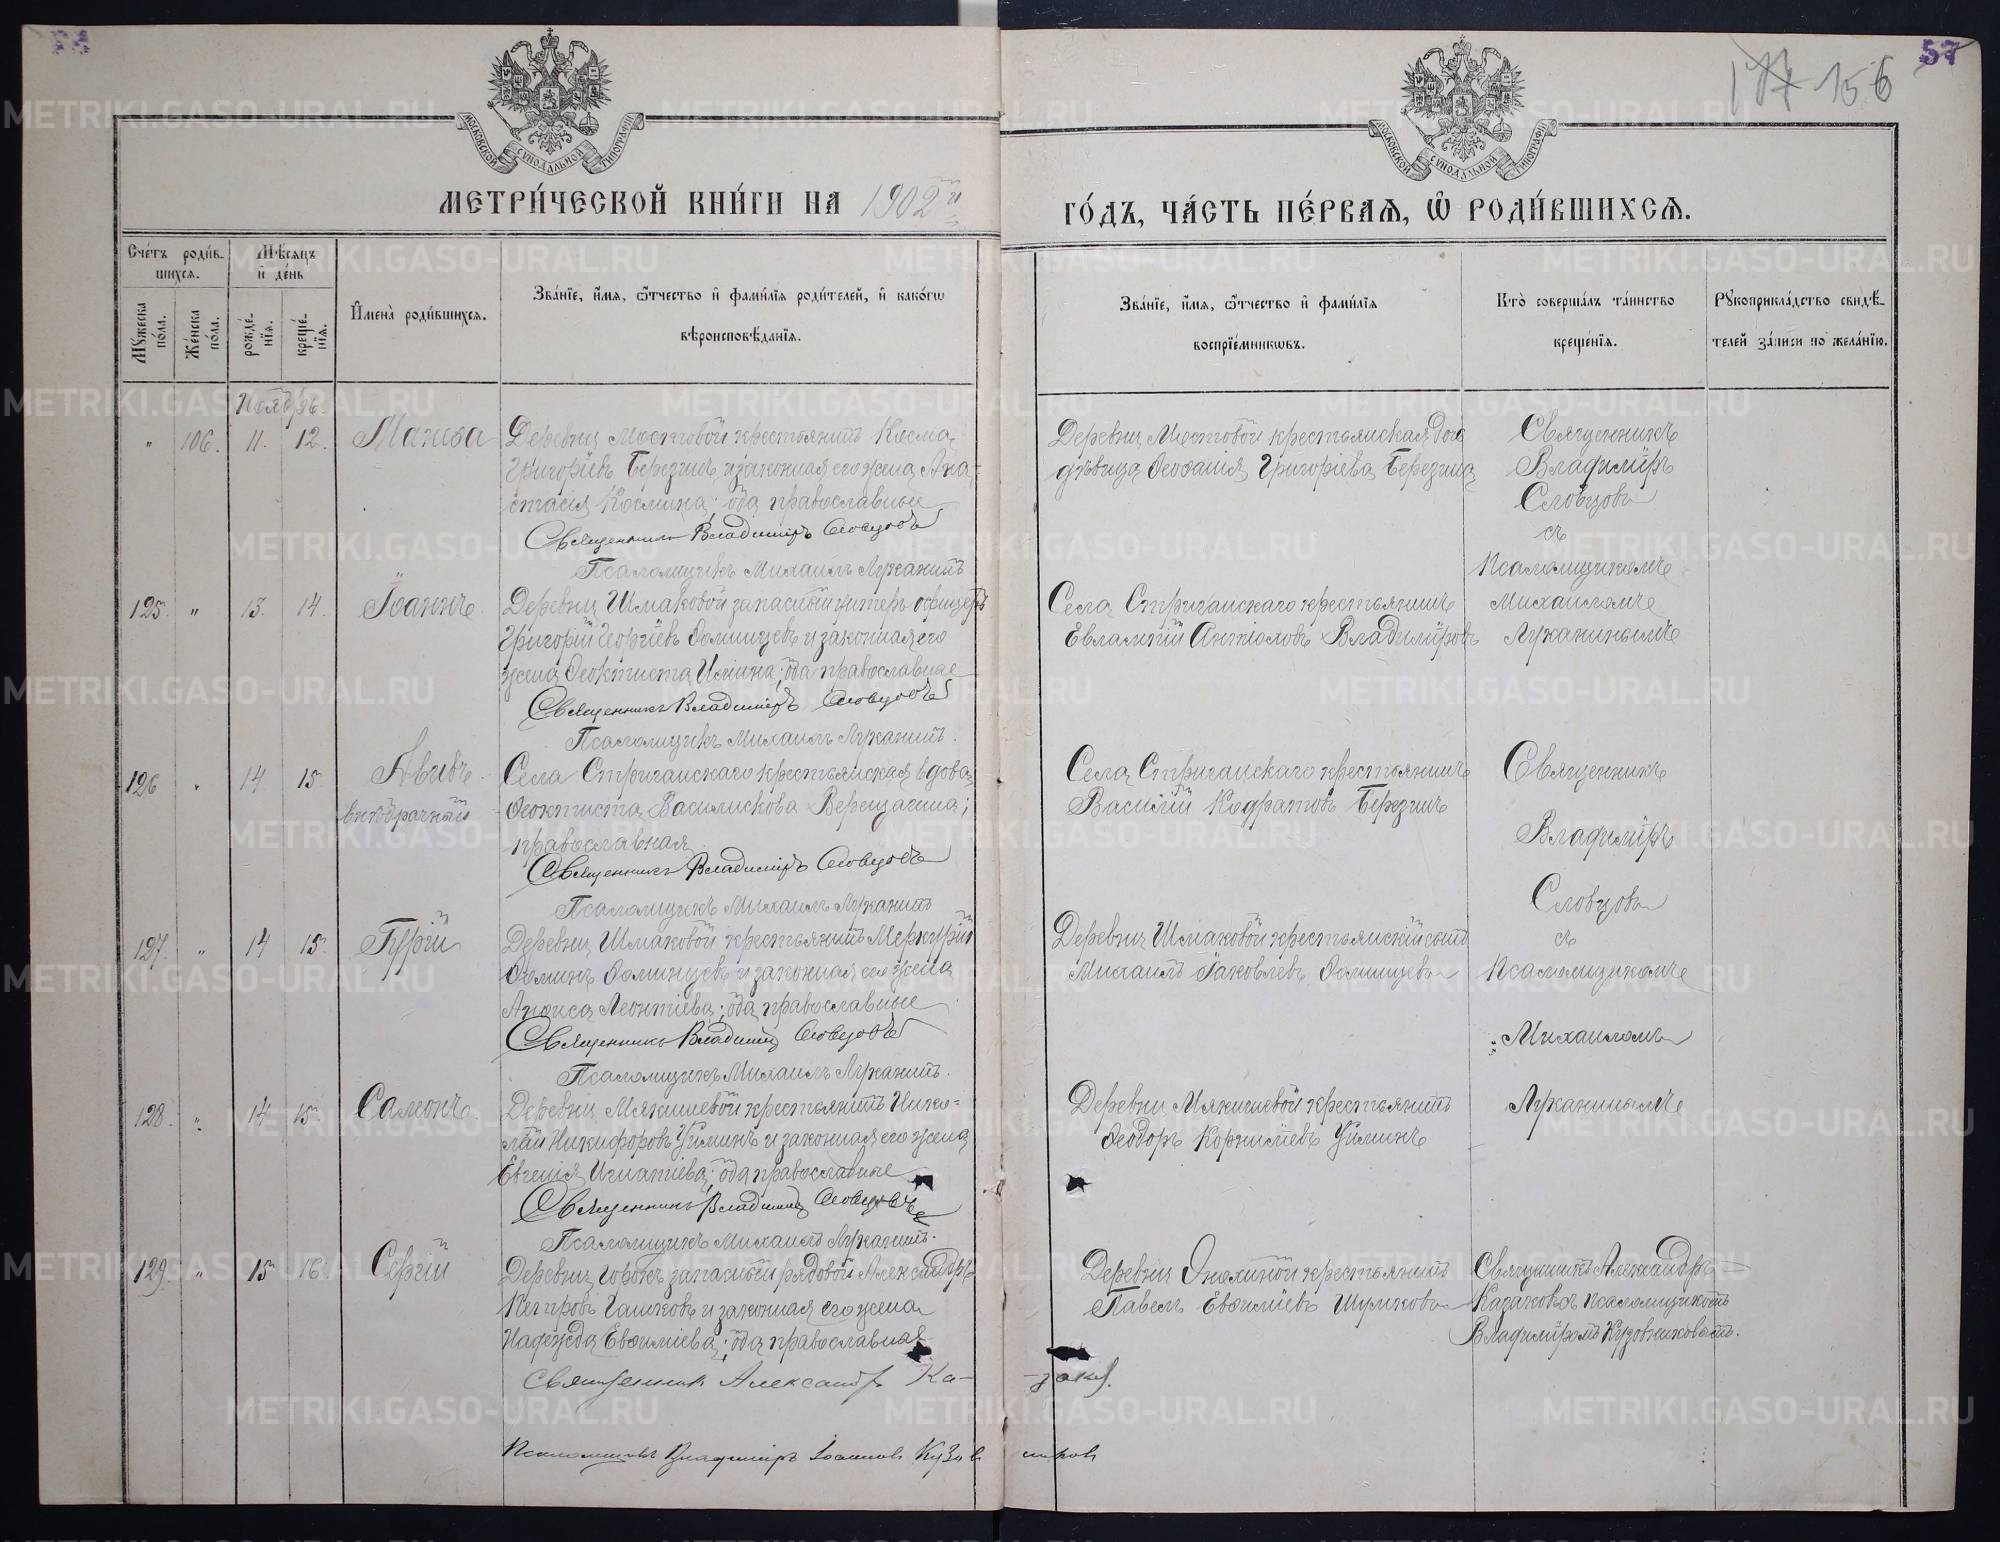 57
177 156
МОСКОВСКОЙ СУНОДАЛЬНОЙ ТИПОГРАФІИ
МОСКОВСКОЙ СУНОДАЛЬНОЙ ТИПОГРАФІИ
МЕТРИ́ЧЕСКОЙ КНИ́ГИ НА 1902й
ГО́ДЪ, ЧА́СТЬ ПЕ́РВАѦ, Ѿ РОДИ́ВШИХСѦ.
Сче́тъ роди́вшихся.
Му́жеска по́ла.
Же́нска по́ла.
Мѣ́сяцъ и де́нь
рожде́нїя.
креще́нїя.
И҆мена̀ роди́вшихся.
Зва́нїе, и҆́мя, ѻ҆́тчество и҆ фами́лїя роди́телей, и҆ како́гѡ
вѣроисповѣ́данїя.
Зва́нїе, и҆́мя, ѻ҆́тчество и҆ фами́лїя
воспрїе́мникѡвъ.
Кто̀ соверша́лъ та́инство
креще́нїя.
Рꙋкоприкла́дство свидѣ́телей за́писи по жела́нїю.
Ноябрь.
" 106. 11. 12. Манефа
Деревни Мостовой крестьянинъ Косма
Григоріевъ Березинъ и законная его жена Ана-
стасія Космина; оба православные
Священникъ Владиміръ Словцовъ
Псаломщикъ Михаилъ Лужанинъ
Деревни Мостовой крестьянская дочь
дѣвица Ѳеофанія Григоріева Березина
Священникъ
Владиміръ
Словцовъ
съ
Псаломщикомъ
Михаиломъ
Лужанинымъ
125. " 13. 14. Іоаннъ
Деревни Шмаковой запасный унтеръ офицеръ
Григорій Георгіевъ Ѳоминцевъ и законная его
жена Ѳеоктиста Ильина; оба православные
Священникъ Владиміръ Словцовъ
Псаломщикъ Михаилъ Лужанинъ.
Села Стриганскаго крестьянинъ
Евлампій Владиміровъ
126 " 14 15 Авивъ
внѣбрачный
Села Стриганскаго крестьянская вдова
Ѳеоктиста Василискова Верещагина;
православная
Священникъ Владиміръ Словцовъ
Псаломщикъ Михаилъ Лужанинъ
Села Стриганскаго крестьянинъ
Василій Кодратовъ Березинъ
Священникъ
Владиміръ
Словцовъ
съ
Псаломщикомъ
Михаиломъ
Лужанинымъ
127. " 14 15 Гурій
Деревни Шмаковой крестьянинъ Меркурій
Ѳоминъ Ѳоминцевъ и законная его жена
Анфиса Леонтіева; оба православные
Священникъ Владиміръ Словцовъ
Псаломщикъ Михаилъ Лужанинъ.
Деревни Шмаковой крестьянскій сынъ
Михаилъ Іаковлевъ Ѳоминцевъ
128. " 14 15 Самонъ
Деревни Мякишевой крестьянинъ Нико-
лай Никифоровъ Уиминъ и законная его жена
Евгенія Игнатіева; оба православные
Священникъ Владиміръ Словцовъ
Псаломщикъ Михаилъ Лужанинъ.
Деревни Мякишевой крестьянинъ
Ѳеодоръ Корниліевъ Уиминъ
129. " 15 16. Сергій
Деревни Горокъ запасный рядовой Александръ
Гашковъ и законная его жена
Надежда Евфиміева; оба православная
Священник Александр Ка-заков.
Псаломщикъ Владиміръ Іоанновъ Кузовников
Деревни Онохиной крестьянинъ
Павелъ Евфиміевъ Шумковъ
Священникъ Александръ
Казаковъ съ псаломщикомъ
Владиміромъ Кузовниковымъ.